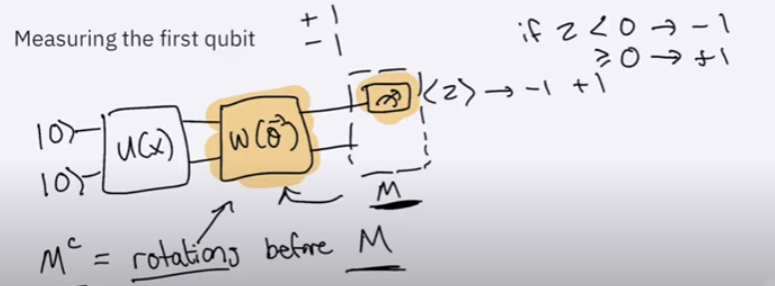 + 1
Measuring the first qubit
- 1
if z < 0 → -1
≥ 0 → +1
⟨z⟩ → -1 +1
|0⟩
U(x)
W(θ⃗)
|0⟩
M
M^c = rotations before M